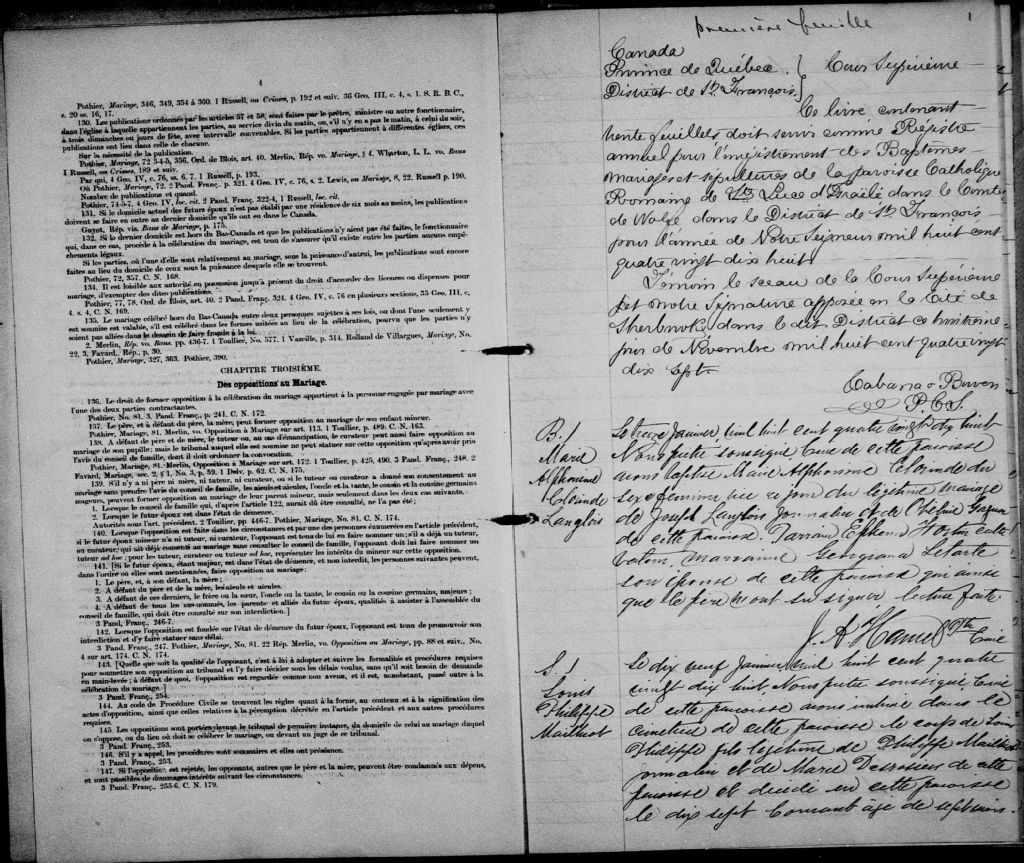 4
Pothier, Mariage, 346, 349, 354 à 360. 1 Russell, on Crimes, p. 192 et suiv. 36 Geo. III, c. 4, s. 1. S. R. B. C.,
c. 20 ss. 16, 17.
130. Les publications ordonnées par les articles 57 et 58, sont faites par le prêtre, ministre ou autre fonctionnaire,
dans l'église à laquelle appartiennent les parties, au service divin du matin, ou, s'il n'y en a pas le matin, à celui du soir,
à trois dimanches ou jours de fête, avec intervalle convenables. Si les parties appartiennent à différentes églises, ces
publications ont lieu dans celle de chacune.
Sur la nécessité de la publication.
Pothier, Mariage, 72 3-4-5, 356. Ord. de Blois, art. 40. Merlin, Rép. vo. Mariage, § 4. Wharton, L. L. vo. Bans
1 Russell, on Crimes, 189 et suiv.
Par qui, 4 Geo. IV, c. 76, ss. 6, 7. 1 Russell, p. 193.
Où Pothier, Mariage, 72. 2 Pand. Franç. p. 321. 4 Geo. IV, c. 76, s. 2. Lewis, on Mariage, 8, 22. Russell p. 190.
Nombre de publications et quand.
Pothier, 74-5-7, 4 Geo. IV, loc. cit. 2 Pand. Franç. 322-4, 1 Russell, loc. cit.
131. Si le domicile actuel des futurs époux n'est pas établi par une résidence de six mois au moins, les publications
doivent se faire en outre au dernier domicile qu'ils ont eu dans le Canada.
Guyot, Rép. vis. Bans de Mariage, p. 175.
132. Si le dernier domicile est hors du Bas-Canada et que les publications n'y aient pas été faites, le fonctionnaire
qui, dans ce cas, procède à la célébration du mariage, est tenu de s'assurer qu'il existe entre les parties aucuns empê-
chements légaux.
Si les parties, où l'une d'elles sont relativement au mariage, sous la puissance d'autrui, les publications sont encore
faites au lieu du domicile de ceux sous la puissance desquels elles se trouvent.
Pothier, 72, 357. C. N. 168.
134. Il est loisible aux autorité en possession jusqu'à présent du droit d'accorder des licences ou dispenses pour
mariage, d'exempter des dites publications.
Pothier, 77, 78. Ord. de Blois, art. 40. 2 Pand. Franç. 324. 4 Geo. IV, c. 76 en plusieurs sections, 35 Geo. III, c.
4, s. 4, C. N. 169.
135. Le mariage célébré hors du Bas-Canada entre deux personnes sujettes à ses lois, ou dont l'une seulement y
est soumise est valable, s'il est célébré dans les formes usitées au lieu de la célébration, pourvu que les parties n'y
soient pas allées dans le dessein de faire fraude à la loi.
2. Merlin, Rép. vo. Bans. pp. 436-7. 1 Toullier, No. 577. 1 Vazeille, p. 314. Rolland de Villargues, Mariage, No.
22, 3, Favard, Rép., p. 30.
Pothier, Mariage, 327, 363. Pothier, 390.
CHAPITRE TROISIÈME.
Des oppositions au Mariage.
136. Le droit de former opposition à la célébration du mariage appartient à la personne engagée par mariage avec
l'une des deux parties contractantes.
Pothier, No. 81. 3. Pand. Franç., p. 241. C. N. 172.
137. Le père, et à défaut du père, la mère, peut former opposition au mariage de son enfant mineur.
Pothier, Mariage, 81. Merlin, vo. Opposition à Mariage sur art. 113. 1 Toullier, p. 489. C. N. 163.
138. A défaut de père et de mère, le tuteur ou, au cas d'émancipation, le curateur peut aussi faire opposition au
mariage de son pupille; mais le tribunal auquel elle est soumise ne peut statuer sur cette opposition qu'après avoir pris
l'avis du conseil de famille, dont il doit ordonner la convocation.
Pothier, Mariage, 81. Merlin, Opposition à Mariage sur art. 172. 1 Toullier, p. 425, 490. 3 Pand. Franç., 248. 2
Favard, Mariage, sec. 2, § 1, No. 3, p. 59. 1 Delv. p. 62. C. N. 175.
139. S'il n'y a ni père ni mère, ni tuteur, ni curateur, ou si le tuteur ou curateur a donné son consentement au
mariage sans prendre l'avis du conseil de famille, les aïeuls et aïeules, l'oncle et la tante, le cousin et la cousine germains
majeurs, peuvent former opposition au mariage de leur parent mineur, mais seulement dans les deux cas suivants.
1. Lorsque le conseil de famille qui, d'après l'article 122, aurait dû être consulté, ne l'a pas été;
2. Lorsque le futur époux est dans l'état de démence.
Autorités sous l'art. précédent. 2 Toullier, pp. 446-7. Pothier, Mariage, No. 81. C. N. 174.
140. Lorsque l'opposition est faite dans les circonstances et par une des personnes énumérées en l'article précédent,
si le futur époux mineur n'a ni tuteur, ni curateur, l'opposant est tenu de lui en faire nommer un; s'il a déjà un tuteur,
ou curateur, qui ait déjà consenti au mariage sans consulter le conseil de famille, l'opposant doit lui faire nommer un
tuteur ad hoc; pour les tuteur, curateur ou tuteur ad hoc, représenter les intérêts du mineur sur cette opposition.
141. [Si le futur époux, étant majeur, est dans l'état de démence, et non interdit, les personnes suivantes peuvent,
dans l'ordre où elles sont mentionnées, faire opposition au mariage:
1. Le père, et, à son défaut, la mère;
2. A défaut du père et de la mère, les aïeuls et aïeules.
3. A défaut de ces derniers, le frère ou la sœur, l'oncle ou la tante, le cousin ou la cousine germains, majeurs;
4. A défaut de tous les sus-nommés, les parents et alliés du futur époux, qualifiés à assister à l'assemblée du
conseil de famille, qui doit être consulté sur son interdiction.]
3 Pand, Franç., 246-7.
142. Lorsque l'opposition est fondée sur l'état de démence du futur époux, l'opposant est tenu de promouvoir son
interdiction et d'y faire statuer sans délai.
3 Pand. Franç., 247. Pothier, Mariage, No. 81. 22 Rép. Merlin, vo. Opposition au Mariage, pp. 88 et suiv., No.
4 sur art. 174. C. N. 174.
143. [Quelle que soit la qualité de l'opposant, c'est à lui à adopter et suivre les formalités et procédures requises
pour soumettre son opposition au tribunal et l'y faire décider sous les délais voulus, sans qu'il soit besoin de demande
en main-levée; à défaut de quoi, l'opposition est regardée comme non avenu, et il est, nonobstant, passé outre à la
célébration du mariage.]
3 Pand. Franç., 254.
144. Au code de Procédure Civile se trouvent les règles quant à la forme, au contenu et à la signification des
actes d'opposition, ainsi que celles relatives à la péremption décrétée en l'article précédent et aux autres procédures
requises.
145. Les oppositions sont portées devant le tribunal de première instance, du domicile de celui au mariage duquel
on s'oppose, ou du lieu où doit se célébrer le mariage, ou devant un juge de ce tribunal.
3 Pand. Franç., 253.
146. S'il y a appel, les procédures sont sommaires et elles ont préséance.
3 Pand. Franç., 253.
147. Si l'opposition est rejetée, les opposants, autres que le père et la mère, peuvent être condamnés aux dépens,
et sont passibles de dommages-intérêts suivant les circonstances.
3 Pand. Franç., 255-6. C. N. 179.
première feuille
1
Canada
Province de Québec
District de St. François
Cour Supérieure
Ce livre contenant
trente feuillets doit servir comme Régistre
annuel pour l'enregistrement des Baptêmes
mariages et sépultures de la paroisse Catholique
Romaine de Ste Luce d'Israëli dans le Comté
de Wolfe dans le District de St. François
pour l'année de Notre Seigneur mil huit cent
quatre vingt dix huit
Témoin le sceau de la Cour Supérieure
et notre Signature apposée en la Cité de
Sherbrooke dans le dit District ce huitième
jour de Novembre mil huit cent quatre vingt
dix sept
Cabana & Bowen
P.C.S.
B.1
Marie
Alphonsine
Clorinde
Langlois
Le treize Janvier, mil huit cent quatre vingt dix huit
Nous prêtre soussigné Curé de cette paroisse
avons baptisé Marie Alphonsine Clorinde du
sexe féminin née ce jour du légitime mariage
de Joseph Langlois Journalier et de Gagnon
de cette paroisse. Parrain Ephrem Fortin culti-
vateur, marraine Georgiana Letarte
son épouse de cette paroisse qui ainsi
que le père n'ont su signer lecture faite.
J. A. Hamel Ptre
Curé
S.1
Louis
Philippe
Mailhot
Le dix neuf Janvier, mil huit cent quatre
vingt dix huit, Nous prêtre soussigné, Curé
de cette paroisse avons inhumé dans le
cimetière de cette paroisse le corps de Louis
Philippe fils légitime de Philippe Mailhot
journalier et de Marie de cette
paroisse et décédé en cette paroisse
le dix sept Courant âgé de sept mois.